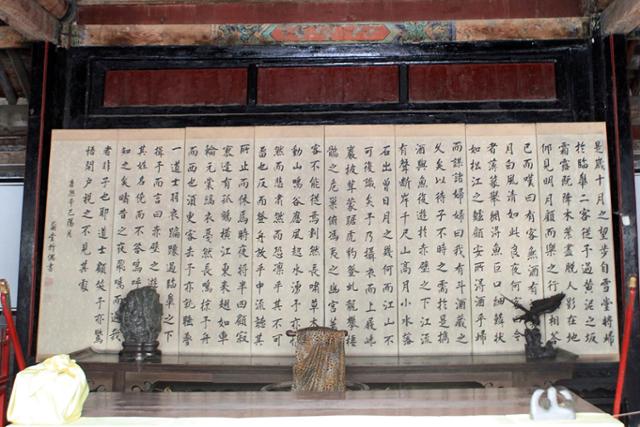 是歲十月之望步自雪堂將歸
於臨皋二客從予過黃泥之坂
霜露既降木葉盡脫人影在地
仰見明月顧而樂之行歌相答
已而嘆曰有客無酒有
月白風清如此良夜何
者薄暮舉網得魚巨口細鱗狀
如松江之鱸顧安所得酒乎歸
而謀諸婦婦曰我有斗酒藏之
久矣以待子不時之需於是攜
酒與魚復遊於赤壁之下江流
有聲斷岸千尺山高月小水落
石出曾日月之幾何而江山不
可復識矣予乃攝衣而上履巉
巖披蒙茸踞虎豹登虬龍攀棲
鶻之危巢俯馮夷之幽宮
客不能從焉劃然長嘯草木
動山鳴谷應風起水湧予亦悄
然而悲肅然而恐凜乎其不可
留也反而登舟放乎中流聽其
所止而休焉時夜將半四顧寂
寥適有孤鶴橫江東來翅如車
輪玄裳縞衣戛然長鳴掠予舟
而西也須臾客去予亦就睡夢
一道士羽衣蹁躚過臨皋之下
揖予而言曰赤壁之遊
其姓名俛而不答嗚呼
知之矣疇昔之夜飛鳴而過我
者非子也耶道士顧笑予亦驚
悟開戶視之不見其處
辛巳陽月
書